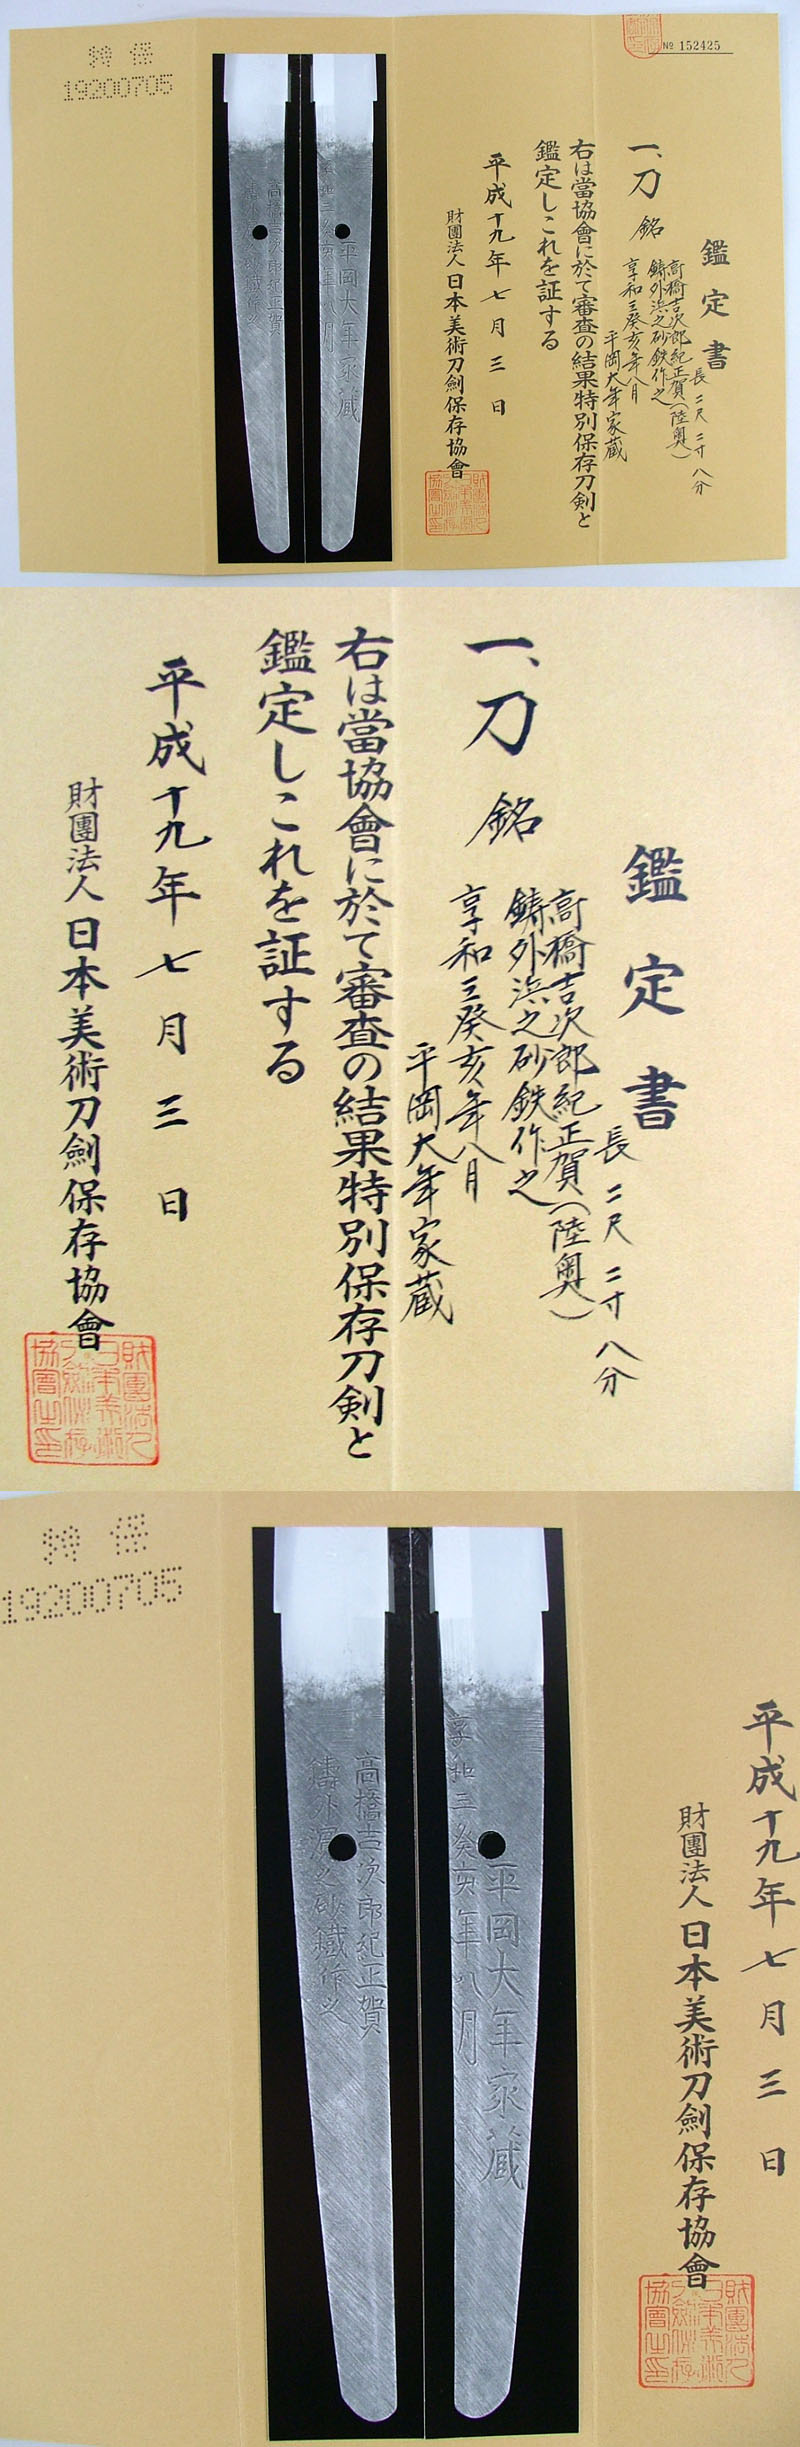 № 152425
鑑定書
長 二尺 二寸 八分
一、刀 銘
高橋吉次郎紀正賀(陸奥)
鋳外浜之砂鉄作之
享和三癸亥年八月
平岡大年家蔵
右は當協會に於て審査の結果特別保存刀剣と
鑑定しこれを証する
平成十九年七月三日
財團法人日本美術刀劍保存協會
平岡大年家蔵
享和三癸亥年八月
高橋吉次郎紀正賀
鋳外濱之砂鐵作之
特 保
19200705
鑑定書
長 二尺 二寸 八分
一、刀 銘
高橋吉次郎紀正賀(陸奥)
鋳外浜之砂鉄作之
享和三癸亥年八月
平岡大年家蔵
右は當協會に於て審査の結果特別保存刀剣と
鑑定しこれを証する
平成十九年七月三日
財團法人日本美術刀劍保存協會
特 保
19200705
平成十九年七月三日
財團法人日本美術刀劍保存協會
平岡大年家蔵
享和三癸亥年八月
高橋吉次郎紀正賀
鋳外濱之砂鐵作之